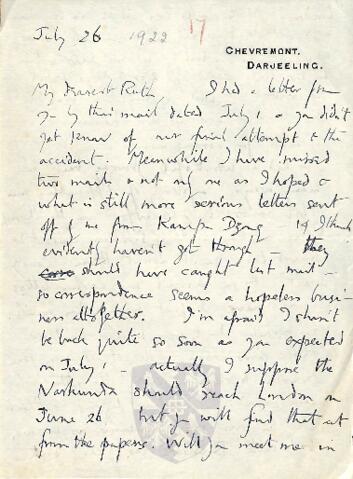 July 26 1922 17
CHEVREMONT,
DARJEELING.
My Dearest Ruth I had a letter from
you by this mail dated July 1 & you didn't
yet know of our final attempt & the
accident. Meanwhile I have missed
two mails & not only one as I hoped &
what is still more serious letters sent
off by me from Kampa Dzong 14 I think
evidently haven't got through – they
should have caught last mail –
so correspondence seems a hopeless busi-
ness altogether. I'm afraid I shan't
be back quite so soon as you expected
on July 1 – actually I suppose the
Narkunda should reach London on
June 26 but you will find that out
from the papers. Will you meet me in